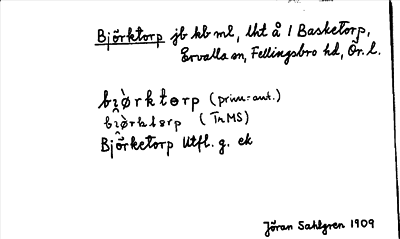 Björktorp jb hb ml, lht å 1 Basketorp,
Ervalla sn, Fellingsbro hd, Ör. l.
bɿørktɵrp (prim:ant.)
bɿørktɵrp (TrMS)
Björketorp Utfl. g. ek
Jöran Sahlgren 1909